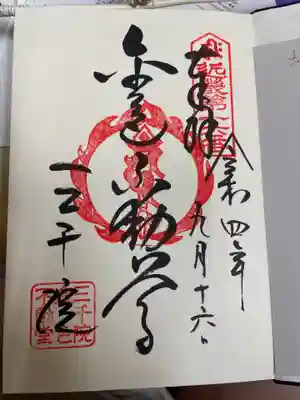 奉拝
令和四年
九月十六日
金色不動尊
三千院